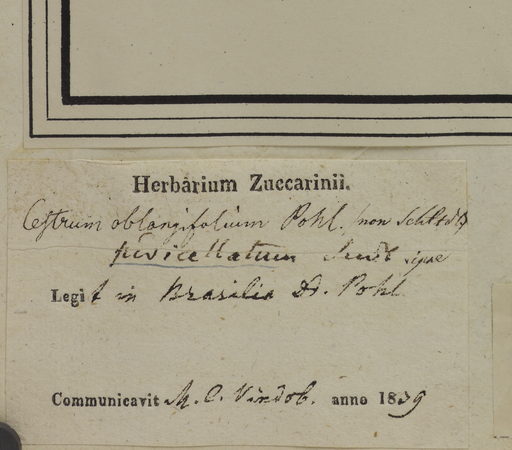 Herbarium Zuccarinii.
Cestrum oblongifolium Pohl. (non Schltdl)
Legit in Brasilia D. Pohl
Communicavit M. C. Vindob. anno 1839